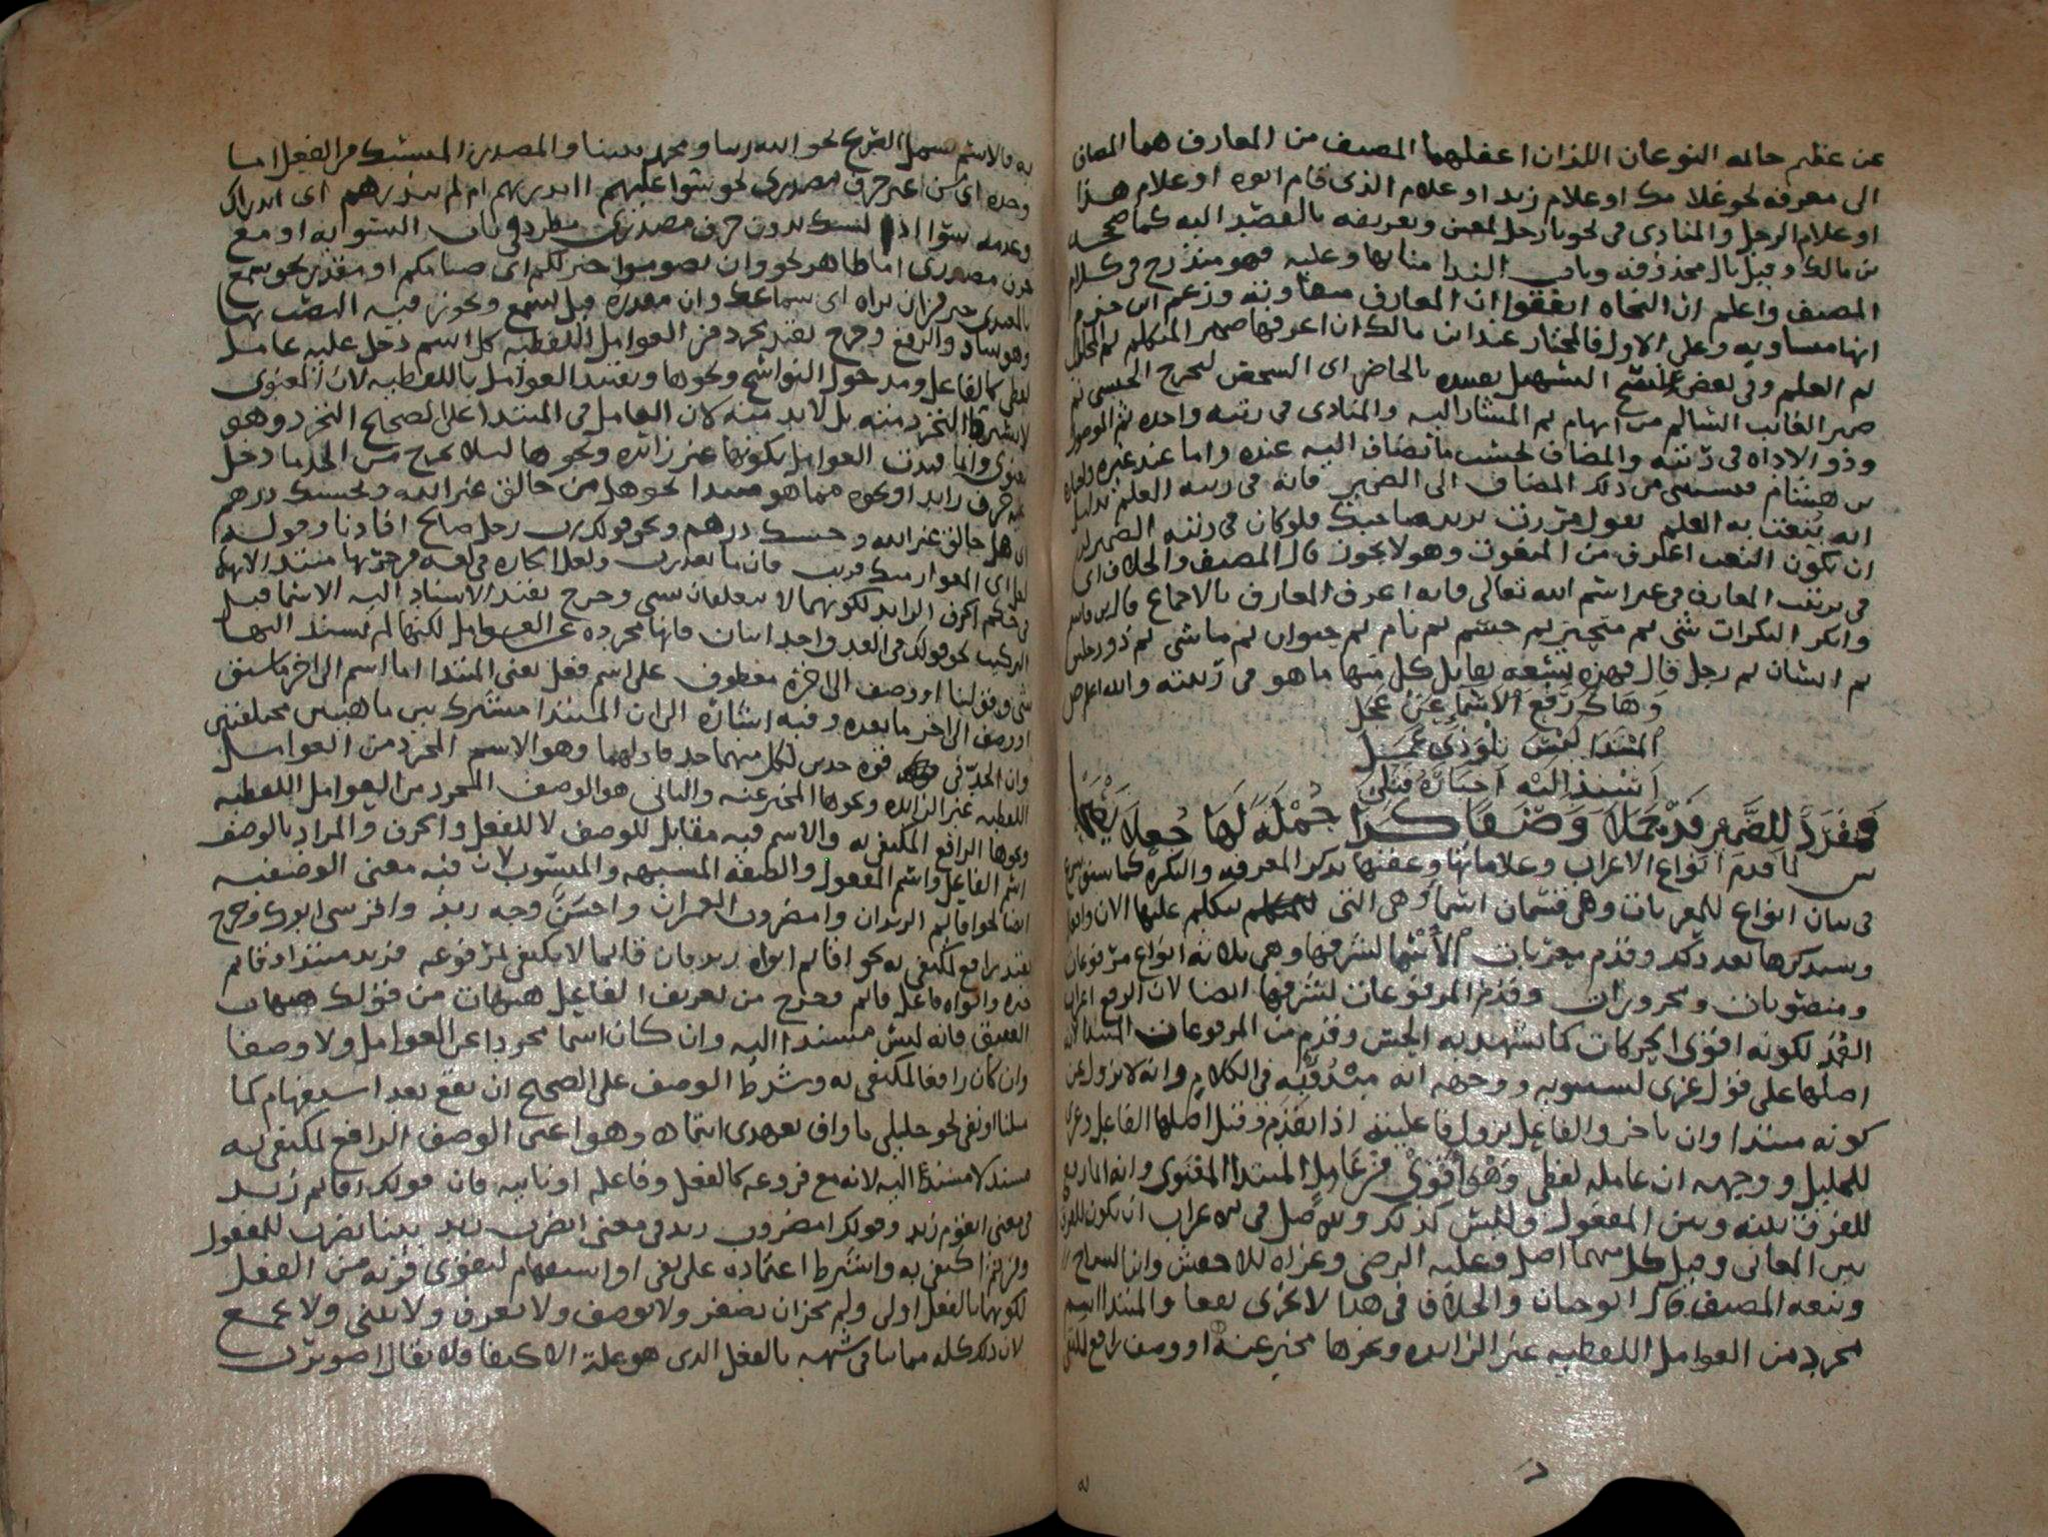 عن عظم حالمه النوعان اللذان اغفلهما المصنف من المعارف هما المضاف
الى معرفه نحو غلامك او غلام زيد او غلام الذي قام ابوه او غلام هذا
او غلام الرجل والمنادى في نحو يا رجل لمعين وتعريفه بالقصد اليه كما صححه
بن مالك وقيل بال محذوفه وناب الندا منابها وعليه فهو مندرج في كلام
المصنف واعلم ان النحاه اتفقوا ان المعارف متفاوته وزعم ابن حزم
انها متساويه وعلى الاول فالمختار عند ابن مالك ان اعرفها ضمير المتكلم ثم المخاطب
ثم العلم وفي بعض نسخ التسهيل تقييده بالخاص اي الشخصي ليخرج الجنسي ثم
ضمير الغائب السالم من ابهام ثم المشار اليه والمنادى في رتبه واحده ثم الموصول
وذو الاداه في رتبته والمضاف بحسب ما يضاف اليه عنده واما عند غيره
بن هشام فيستثنى من ذلك المضاف الى الضمير فانه في رتبه العلم بدليل
انه ينعت به العلم تقول مررت بزيد صاحبك فلو كان في رتبه الضمير
ان يكون النعت اعرف من المنعوت وهو لا يجوز قال المصنف والخلاف
في ترتيب المعارف في غير اسم الله تعالى فانه اعرف المعارف بالاجماع قال
وانكر النكرات شي ثم متحيز ثم جسم ثم نام ثم حيوان ثم ماشي ثم ذو رجلين
ثم انسان ثم رجل قال فهذه تسعه يقابل كل منها ما هو في رتبته والله اعلم
وهاك رفع الاسماء عن عجل
المبتدا ليس بلو ذي عمل
اسند اليه اخباره فتلي
فمفرد للضمير قد تحملا وصفا كذا جمله لها جعلا
لما قدم انواع الاعراب وعلاماتها وعقبها بذكر المعرفه والنكره كما سبق شرع
في بيان انواع المعربات وهي قسمان اسما وهي التي يتكلم عليها الان وافعال
وسيذكرها بعد ذلك وقدم معربات الاسما لشرفها وهي ثلاثه انواع مرفوعات
ومنصوبات ومجرورات وقدم المرفوعات لشرفها ايضا لان الرفع اعراب
العمد لكونه اقوى الحركات كما يشهد به الحس وقدم من المرفوعات المبتدا
اصلها على قول عزي لسيبويه ووجهه انه مبدو به في الكلام وانه لا يزول عن
كونه مبتدا وان تاخر والفاعل يزول فاعليته اذا تقدم وقيل اصلها الفاعل وعزي
للخليل ووجهه ان عامله لفظي وهو اقوى من عامل المبتدا المعنوي وانه انما رفع
للفرق بينه وبين المفعول وليس كذلك والاصل في الاعراب ان يكون للفرق
بين المعاني وقيل كل منهما اصل وعليه الرضي وعزاه للاخفش وابن السراج
وتبعه المصنف قال ابو حيان والخلاف في هذا لا يجدي نفعا والمبتدا اسم
مجرد من العوامل اللفظيه غير الزايده ونحوها مخبر عنه او وصف رافع لمكتفى
به فالاسم يشمل الصريح نحو الله ربنا ومحمد نبينا والمصدر المنسبك من الفعل اما
وحده اي من غير حرف مصدري نحو سوا عليهم اانذرتهم ام لم تنذرهم اي انذارك
وعدمه سوا اذ السبك بدون حرف مصدري مطرد في باب التسويه او مع
حرف مصدري اما ظاهر نحو وان تصوموا خير لكم اي صيامكم او مقدر نحو تسمع
بالمعيدي خير من ان تراه اي سماعك وان مقدره قبل تسمع ويجوز فيه النصب بها
وهو شاذ والرفع وخرج بقيد تجرده من العوامل اللفظيه كل اسم دخل عليه عامل
لفظي كالفاعل ومدخول النواسخ ونحوها وتقييد العوامل باللفظيه لان المعنوي
لا يشترط التجرد منه بل لا بد منه لان العامل في المبتدا على الصحيح التجرد وهو
معنوي وانما قيدت العوامل بكونها غير زائده ونحوها ليلا يخرج من الحد ما دخل
عليه حرف زايد او نحوه مما هو مبتدا نحو هل من خالق غير الله وبحسبك درهم
اي هل خالق غير الله وحسبك درهم ونحو قولك رب رجل صالح افادنا وقوله
لعل ابي المغوار منك قريب
في حكم الحرف الزايد لكونهما لا يتعلقان بشي وخرج بقيد الاسناد اليه الاسما قبل
التركيب نحو قولك في العدد واحد اثنان فانها مجرده عن العوامل لكنها لم يسند اليها
شي وقولنا او وصف الى اخره معطوف على اسم فعلم يعني المبتدا اما اسم الى اخر ما سبق
او وصف الى اخر ما بعده وفيه اشاره الى ان المبتدا مشترك بين ماهيتين مختلفتين
وان الحد في قوه حدين لكل منهما حد فاولهما وهو الاسم المجرد من العوامل
اللفظيه غير الزايده ونحوها المخبر عنه والثاني هو الوصف المجرد من العوامل اللفظيه
ونحوها الرافع لمكتفى به والاسم فيه مقابل للوصف لا للفعل والحرف والمراد بالوصف
اسم الفاعل واسم المفعول والصفه المشبهه والمنسوب لان فيه معنى الوصفيه
ايضا نحو اقائم الزيدان وامضروب العمران واحسن وجه زيد واقرشي ابوك وخرج
بقيد رافع لمكتفى به نحو اقائم ابواه زيد فان قائما لا يكتفي بمرفوعه فزيد مبتدا وقائم
خبره وابواه فاعل قائم وخرج من تعريف الفاعل هيهات من قولك هيهات
العقيق فانه ليس مسندا اليه وان كان اسما مجردا عن العوامل ولا وصفا
وان كان رافعا لمكتفى به وشرط الوصف على الصحيح ان يقع بعد استفهام كما
مثلنا او نفي نحو خليلي ما واف بعهدي انتما وهو اعني الوصف الرافع لمكتفى به
مسند لا مسند اليه لانه مع مرفوعه كالفعل وفاعله او نايبه فان قولك اقائم زيد
في معنى ايقوم زيد وقولك امضروب زيد في معنى ايضرب زيد ببنا يضرب للمفعول
ولهذا اكتفى به واشترط اعتماده على نفي او استفهام ليقوى قربه من الفعل
لكونهما بالفعل اولى ولم يجز ان يصغر ولا يوصف ولا يعرف ولا يثنى ولا يجمع
لان ذلك كله مما ينافي شبهه بالفعل الذي هو علة الاكتفا فلا يقال اضويرب